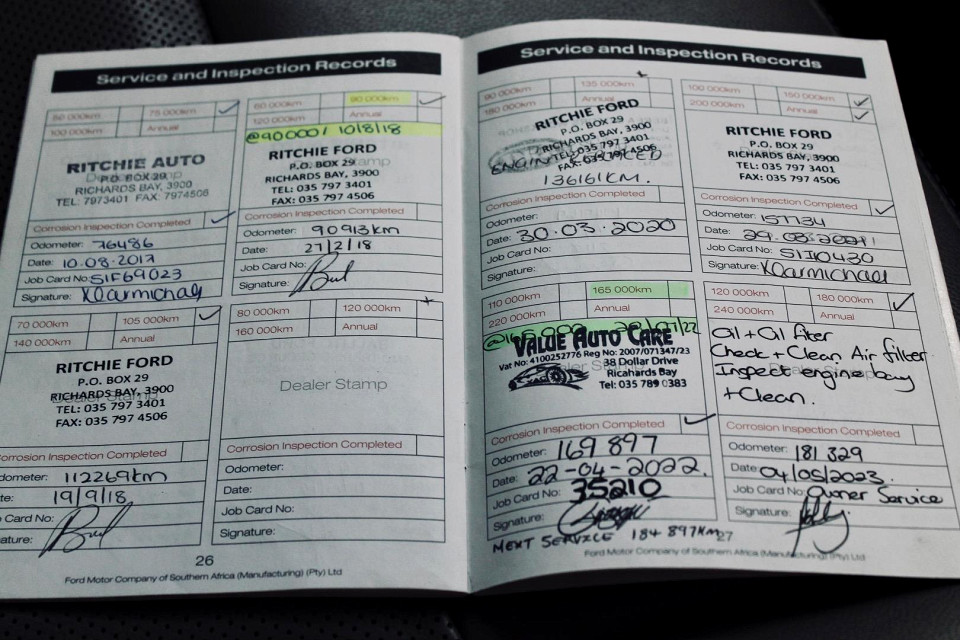 Service and Inspection Records
60 000km 75 000km
100 000km Annual
RITCHIE AUTO
P.O. BOX 29
RICHARDS BAY, 3900
TEL: 7973401 FAX: 7974506
Corrosion Inspection Completed
Odometer: 76486
Date: 10.08.2017
Job Card No: SIF69023
Signature:
60 000km 90 000km
120 000km Annual
@90 000/ 10/8/18
RITCHIE FORD
P.O. BOX 29
RICHARDS BAY, 3900
TEL: 035 797 3401
FAX: 035 797 4506
Corrosion Inspection Completed
Odometer: 90913km
Date: 27/2/18
Job Card No:
Signature:
70 000km 105 000km
140 000km Annual
RITCHIE FORD
P.O. BOX 29
RICHARDS BAY, 3900
TEL: 035 797 3401
FAX: 035 797 4506
Corrosion Inspection Completed
dometer: 112269km
te: 19/9/18
Card No:
ature:
80 000km 120 000km
160 000km Annual
Dealer Stamp
Corrosion Inspection Completed
Odometer:
Date:
Job Card No:
Signature:
26
Ford Motor Company of Southern Africa (Manufacturing) (Pty) Ltd
Service and Inspection Records
90 000km 135 000km
180 000km Annual
RITCHIE FORD
P.O. BOX 29
RICHARDS BAY, 3900
TEL: 035 797 3401
FAX: 035 797 4506
136161KM.
Corrosion Inspection Completed
Odometer:
Date: 30.03.2020
Job Card No:
Signature:
100 000km 150 000km
200 000km Annual
RITCHIE FORD
P.O. BOX 29
RICHARDS BAY, 3900
TEL: 035 797 3401
FAX: 035 797 4506
Corrosion Inspection Completed
Odometer: 157734
Date:
Job Card No: SIJ0430
Signature:
110 000km 165 000km
220 000km Annual
VALUE AUTO CARE
Vat No: 4100252776 Reg No: 2007/071347/23
38 Dollar Drive
Ricahards Bay
Tel: 035 789 0383
Corrosion Inspection Completed
Odometer: 169 897
Date: 22-04-2022.
Job Card No: 35210
Signature:
NEXT SERVICE 184 897KM
120 000km 180 000km
240 000km Annual
Oil + Oil filter
Check + Clean Air filter
Inspect engine bay
+ Clean.
Corrosion Inspection Completed
Odometer: 181 329
Date: 04/05/2023.
Job Card No: Owner Service
Signature:
27
Ford Motor Company of Southern Africa (Manufacturing) (Pty) Ltd